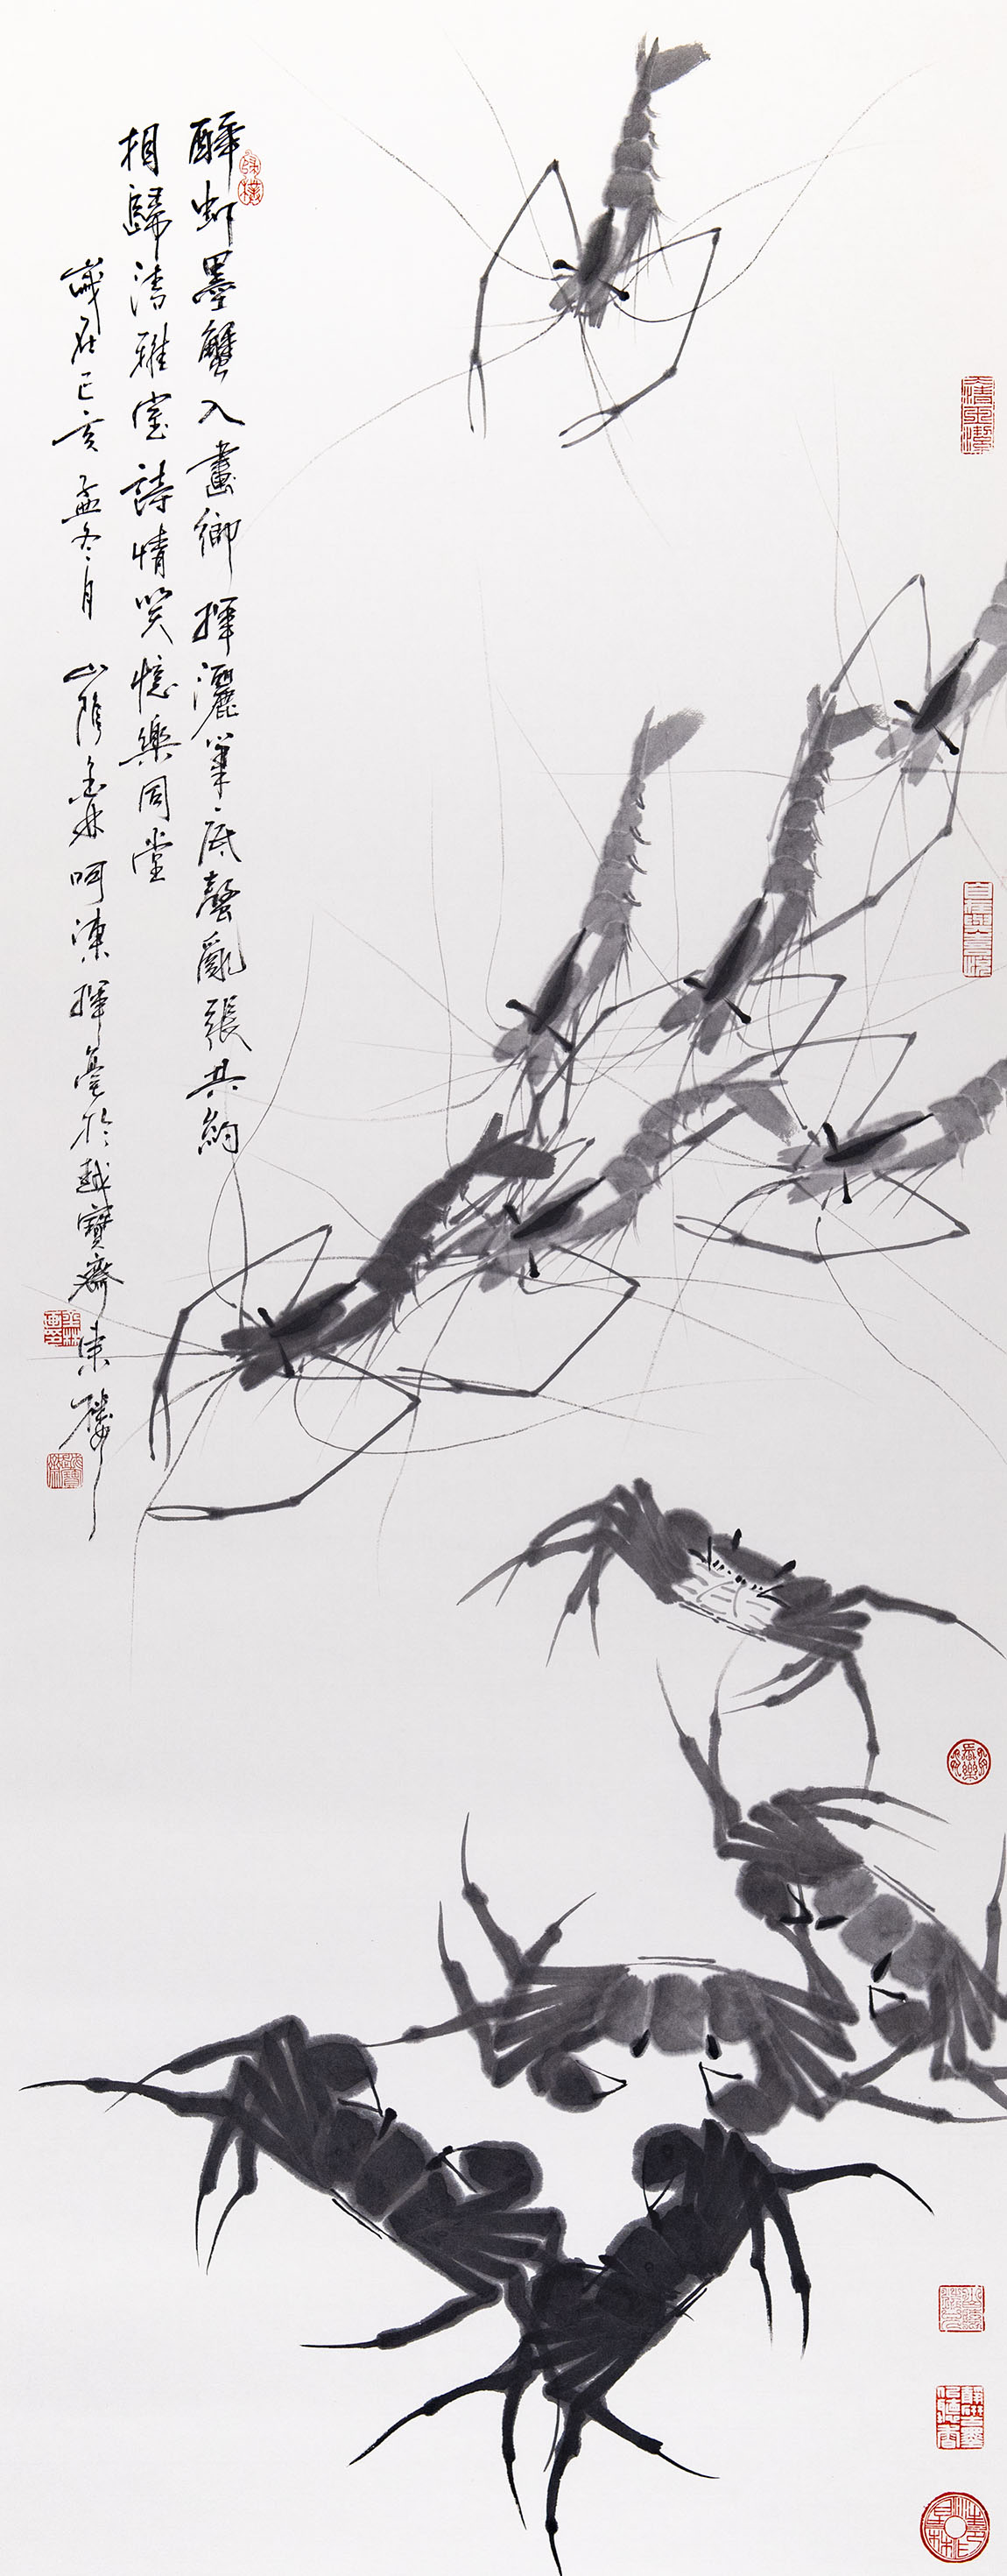 醉虾墨蟹入畫鄉揮灑筆底螯亂張共約
相歸清雅室詩情笑憶樂同堂
歲在己亥孟冬月山陰金林呵凍揮毫於越寶齋東樓